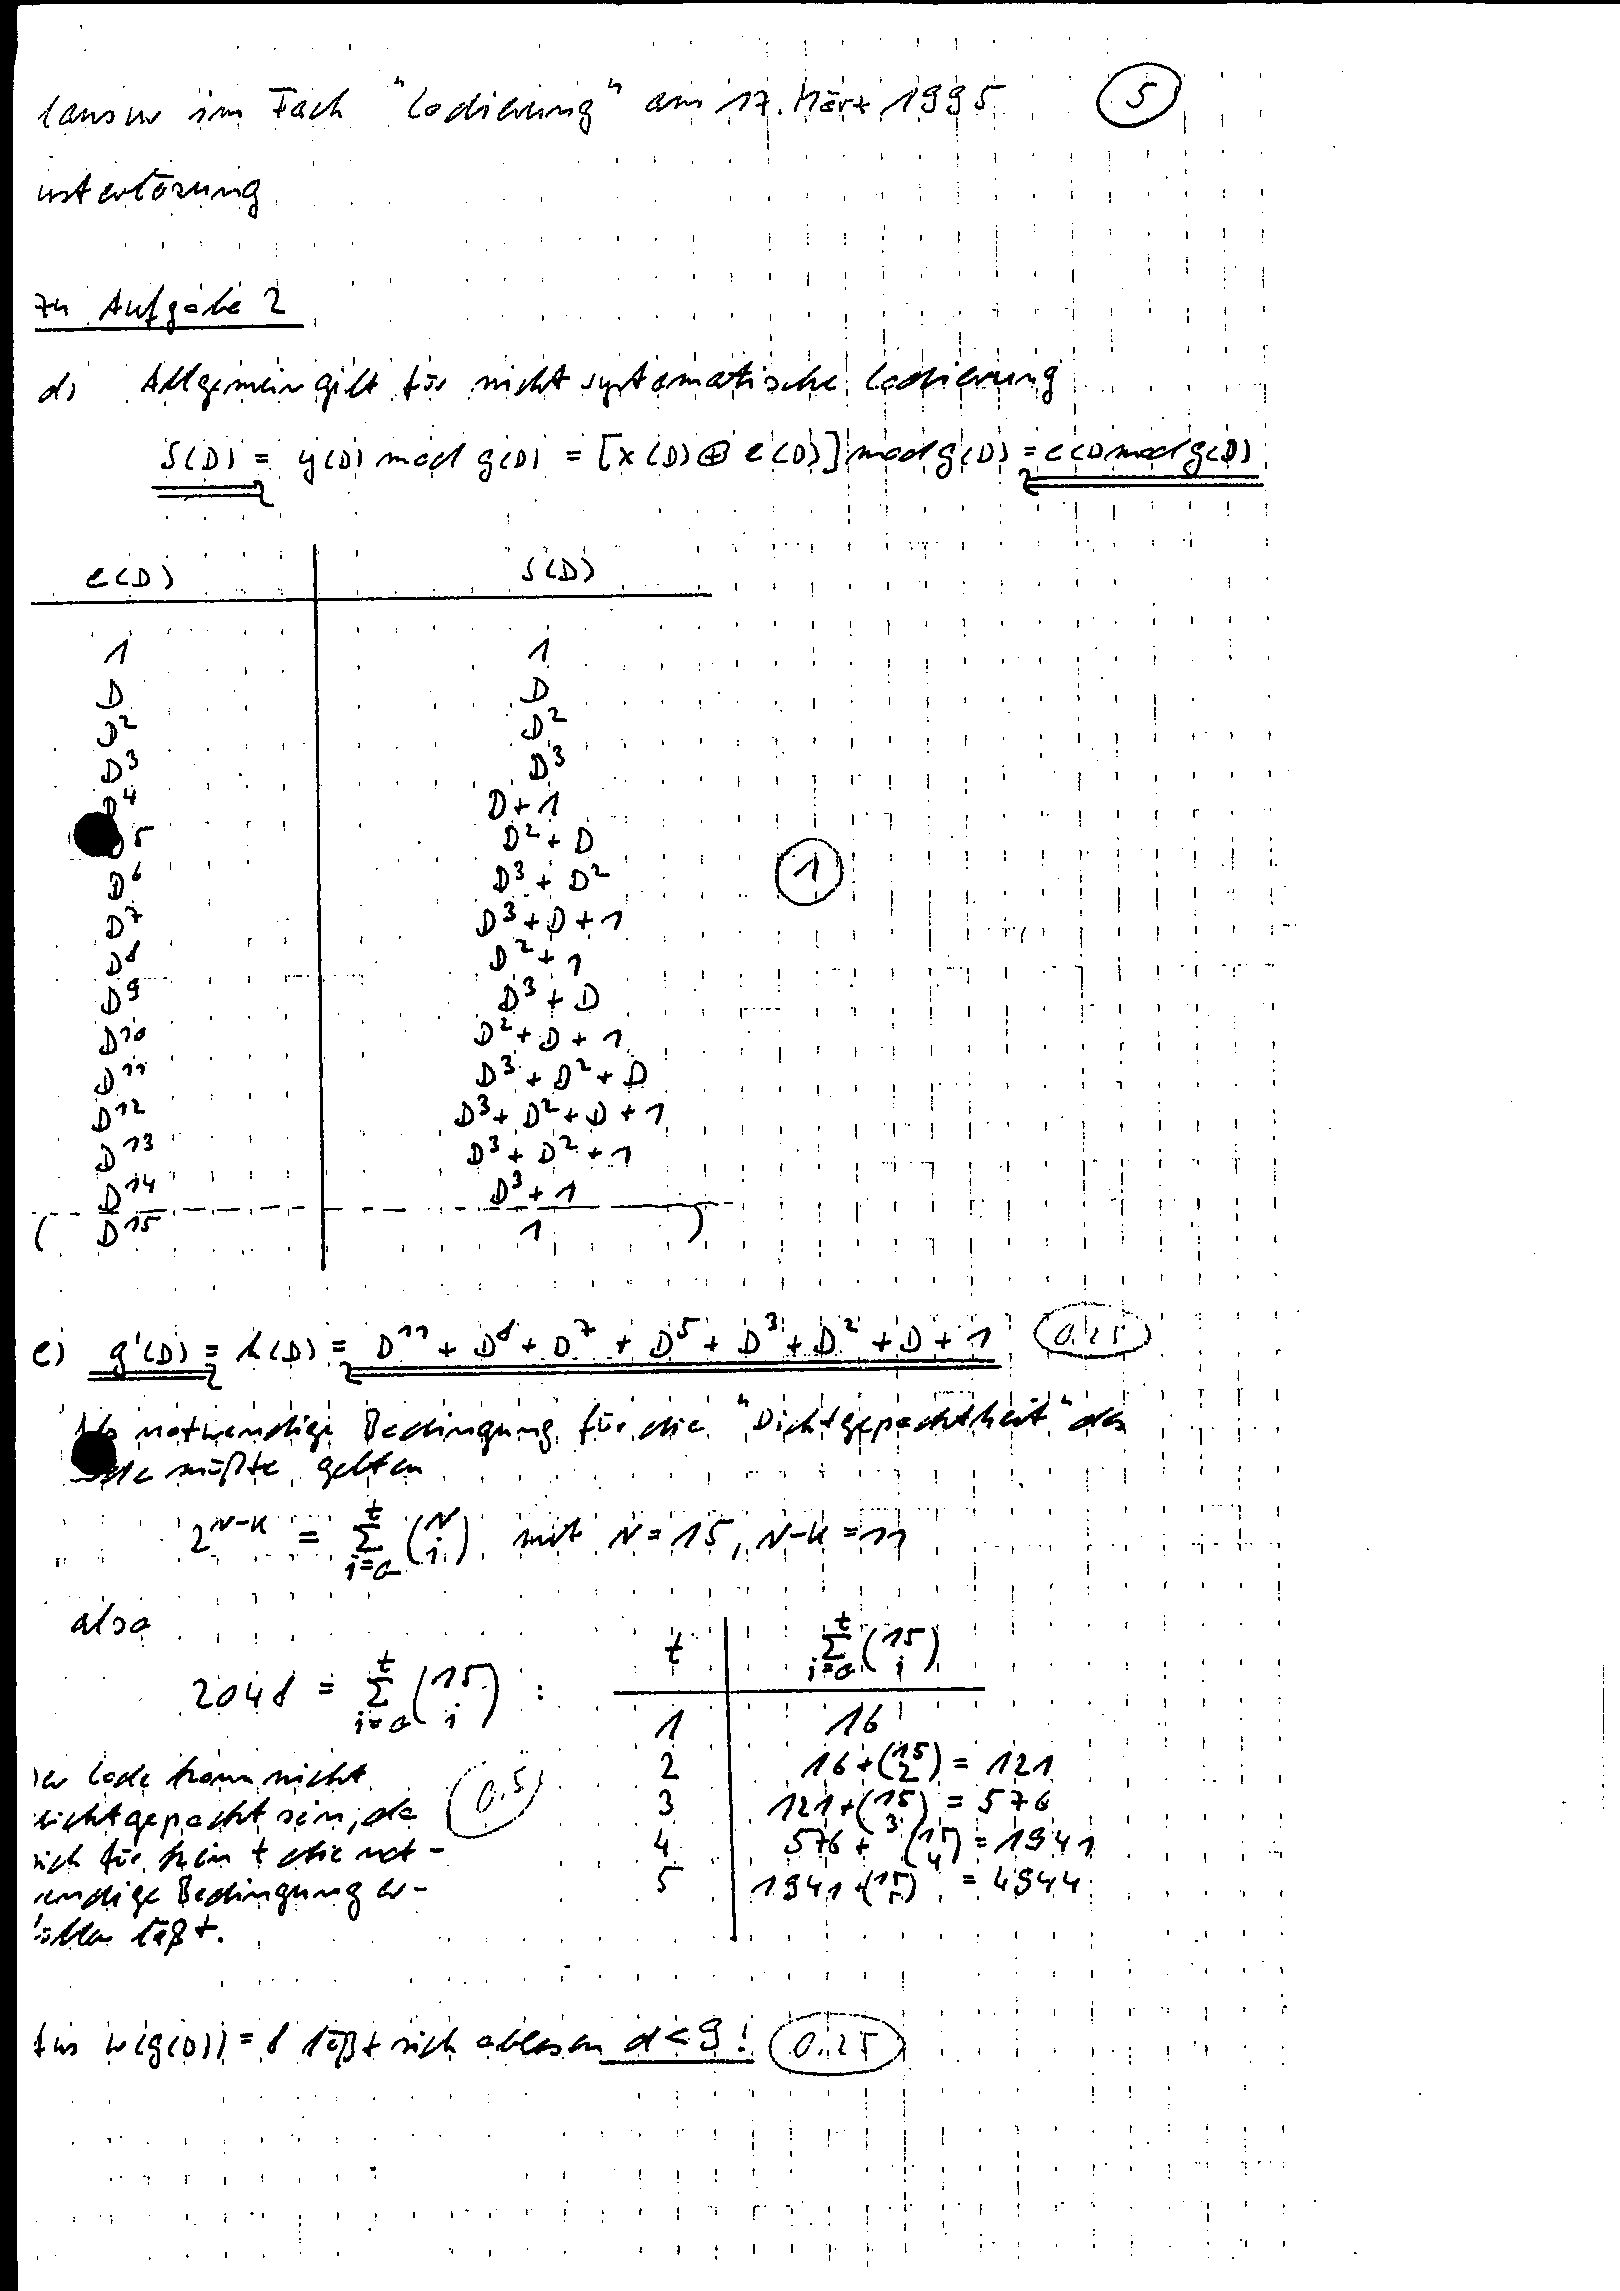 lausur im Fach "Codierung" am 17. März 1995 (5)
usterlösung
zu Aufgabe 2
d) Allgemein gilt für nicht systematische Codierung
S(D) = y(D) mod g(D) = [x(D) ⊕ e(D)] mod g(D) = e(D) mod g(D)
e(D) S(D)
1 1
D D
D² D²
D³ D³
D⁴ D+1
D⁵ D²+D
D⁶ D³+D²
D⁷ D³+D+1
(1)
D⁸ D²+1
D⁹ D³+D
D¹⁰ D²+D+1
D¹¹ D³+D²+D
D¹² D³+D²+D+1
D¹³ D³+D²+1
D¹⁴ D³+1
( D¹⁵ 1 )
e) g'(D) = h(D) = D¹¹ + D⁸ + D⁷ + D⁵ + D³ + D² + D + 1 (0.25)
Als notwendige Bedingung für die "Dichtgepacktheit" des
müßte gelten
2^(N-K) = Σ_{i=0}^{t} (N über i) mit N = 15, N-K = 11
also
t Σ_{i=0}^{t} (15 über i)
2048 = Σ_{i=0}^{t} (15 über i) :
1 16
2 16+(15 über 2) = 121
3 121+(15 über 3) = 576
4 576+(15 über 4) = 1941
5 1941+(15 über 5) = 4944
er Code kann nicht
dichtgepackt sein, da (0.5)
sich für kein t die not-
wendige Bedingung er-
füllen läßt.
Aus w(g(D)) = 8 läßt sich ablesen d < 9! (0.25)